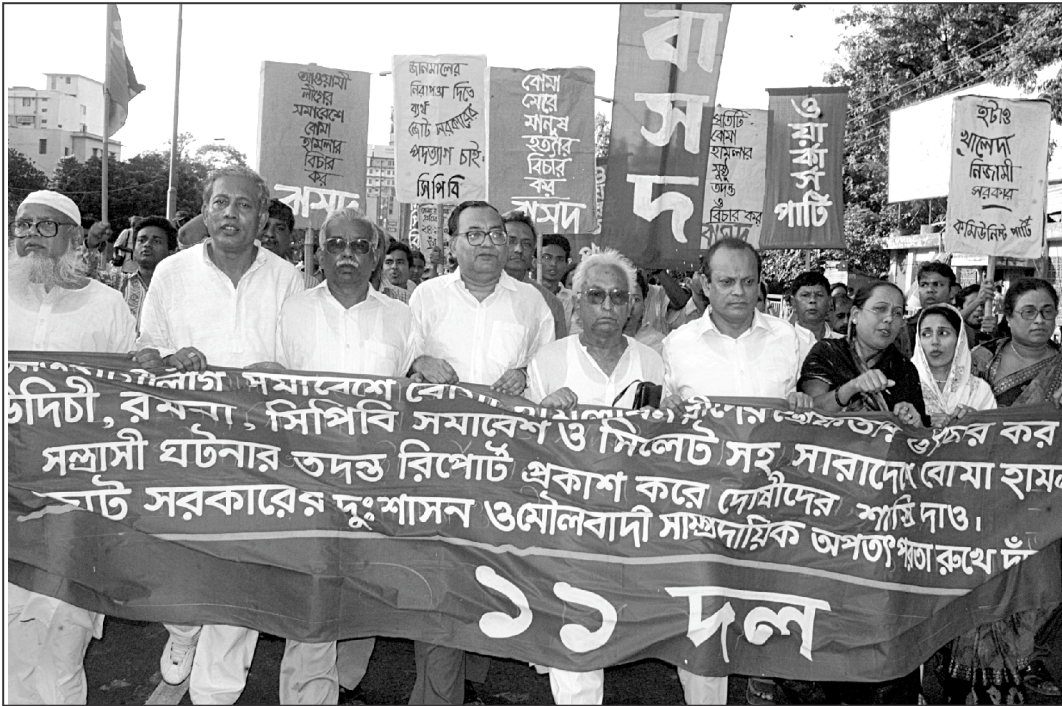 আওয়ামী
লীগের
সমাবেশে
বোমা
হামলার
বিচার
কর
বাসদ
জানমালের
নিরাপত্তা দিতে
ব্যর্থ
জোট সরকারের
পদত্যাগ চাই
সিপিবি
বোমা
মেরে
মানুষ
হত্যার
বিচার
কর
বাসদ
বাসদ
প্রতিটি
বোমা
হামলার
সুষ্ঠু
তদন্ত
ও
বিচার কর
বাসদ
ওয়ার্কার্স
পার্টি
হটাও
খালেদা
নিজামী
সরকার
কমিউনিস্ট পার্টি
সমাবেশে
উদিচী, রমনা, সিপিবি সমাবেশ ও সিলেট সহ সারাদেশে বোমা হামলা
সন্ত্রাসী ঘটনার তদন্ত রিপোর্ট প্রকাশ করে দোষীদের শাস্তি দাও।
জোট সরকারের দুঃশাসন ও মৌলবাদী সাম্প্রদায়িক অপতৎপরতা রুখে
১১ দল